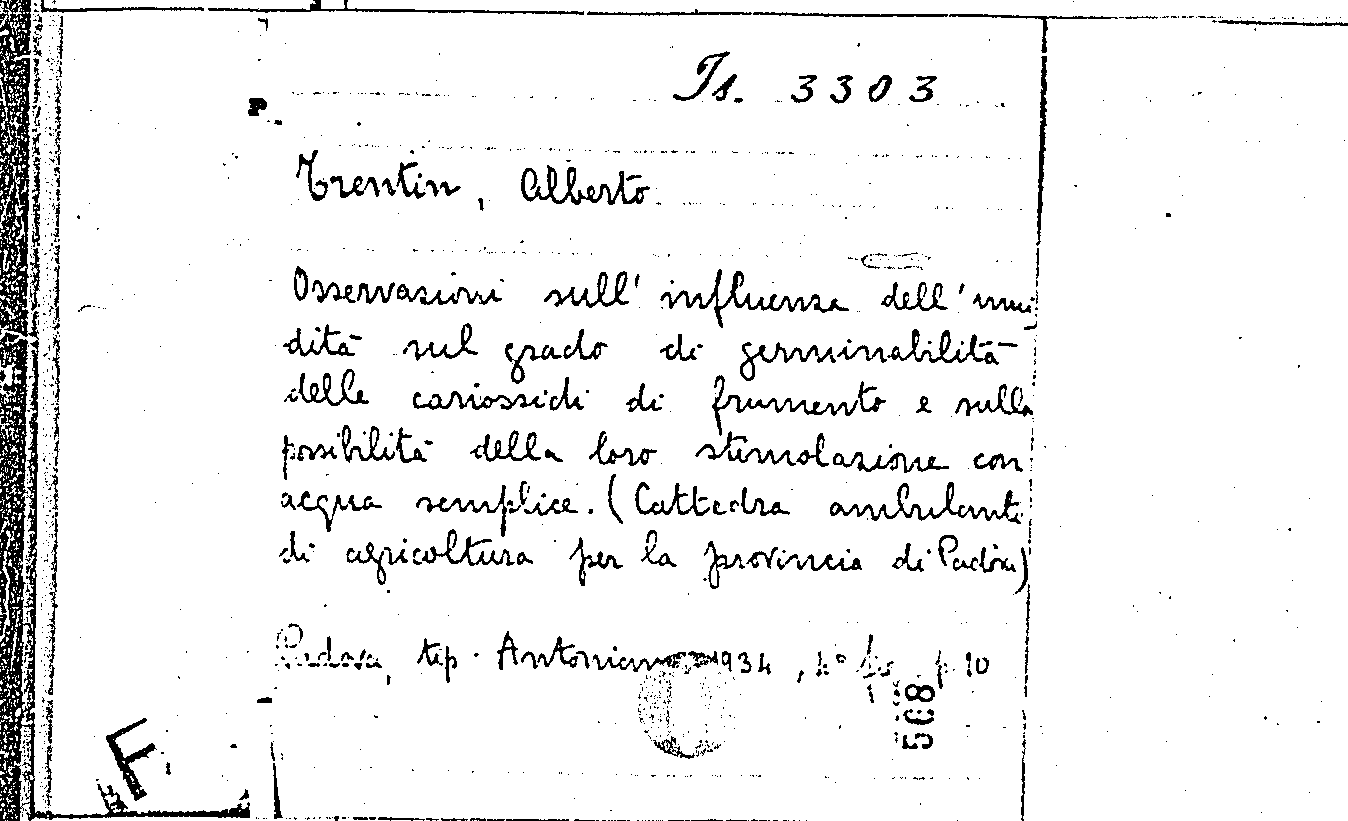 Is. 3303
P.
Trentin, Alberto
Osservazioni sull'influenza dell'umi
dità sul grado di germinabilità
delle cariossidi di frumento e sulla
possibilità della loro stimolazione con
acqua semplice. (Cattedra ambulante
di agricoltura per la provincia di Padova)
Padova, tip. Antoniana 1934, 4° p. 10
508
F